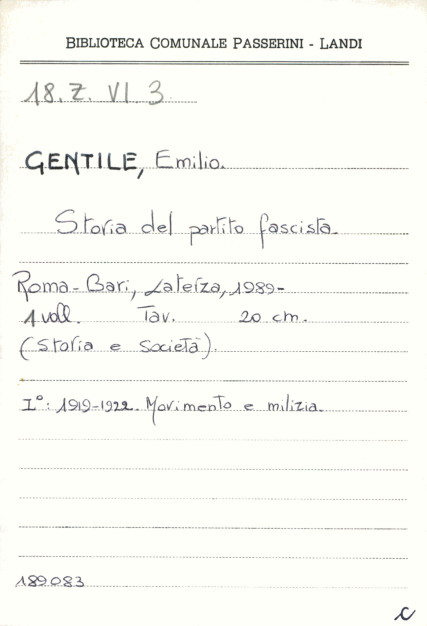 BIBLIOTECA COMUNALE PASSERINI - LANDI
18. Z. VI. 3
GENTILE, Emilio.
Storia del partito fascista.
Roma - Bari, Laterza, 1989-
1 voll. Tav. 20 cm.
(Storia e società).
I°: 1919-1922. Movimento e milizia.
189083
c